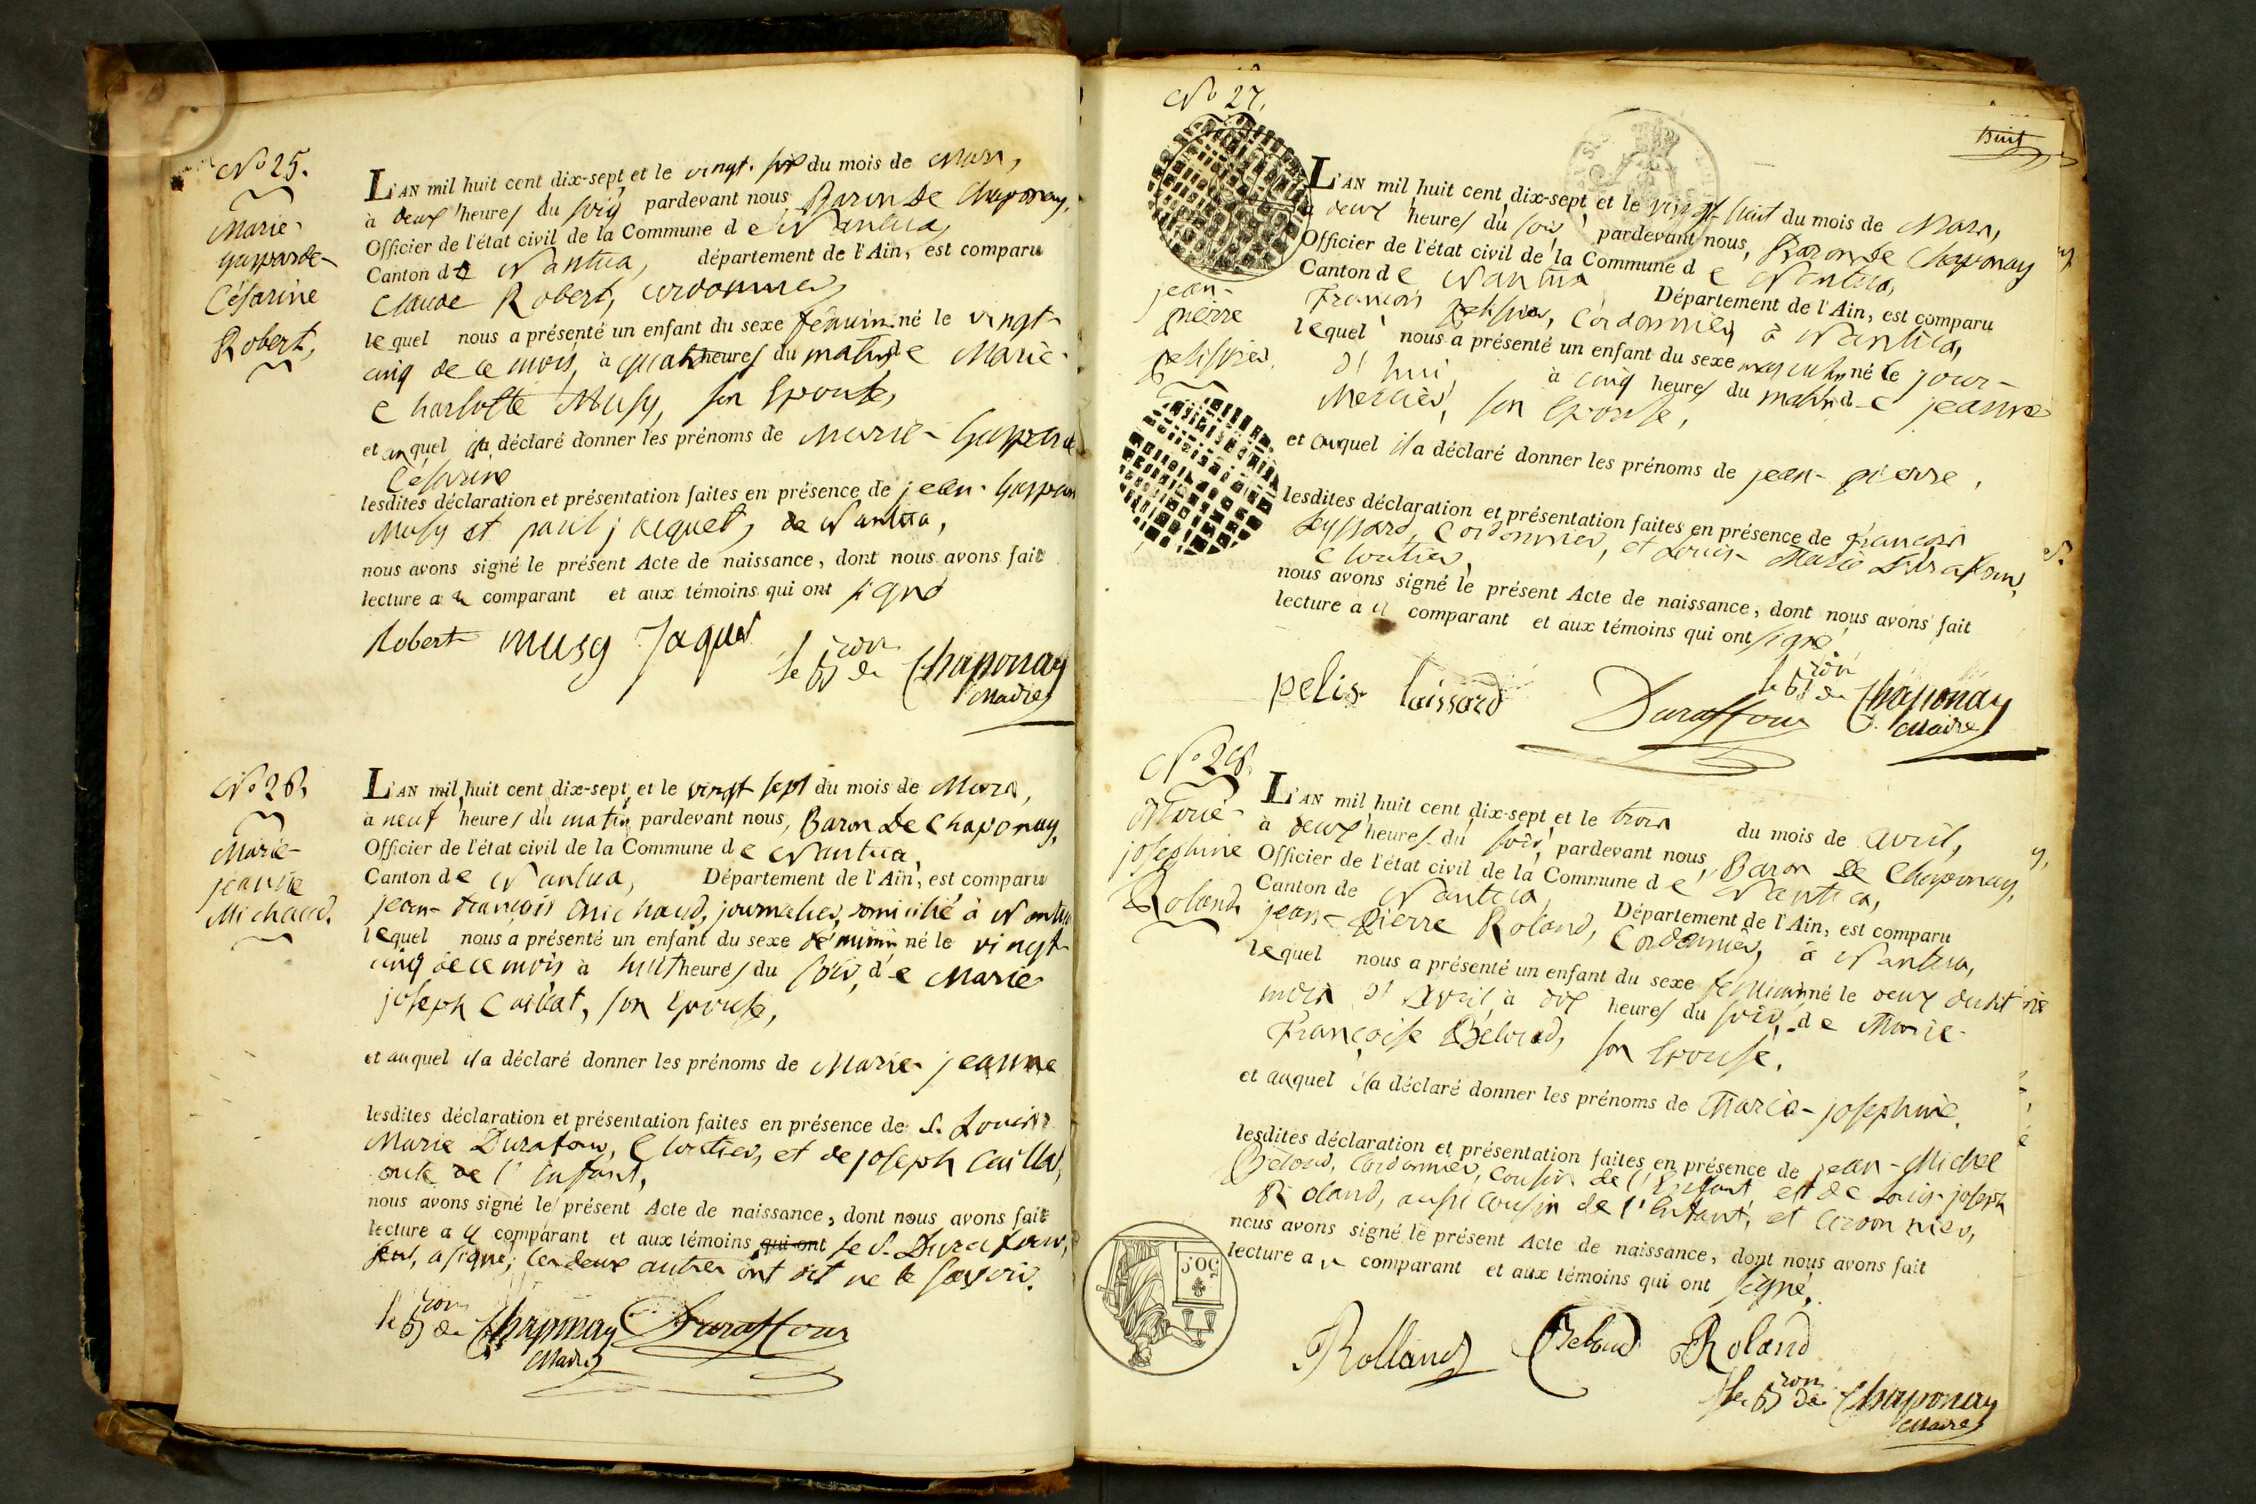 No 25.
Marie-
Gasparde-
Césarine
Robert,
L'AN mil huit cent dix-sept et le vingt-six du mois de Mars,
à deux heures du soir pardevant nous, Baron De Chaponay,
Officier de l'état civil de la Commune de Nantua,
Canton de Nantua, département de l'Ain, est comparu
Claude Robert, cordonnier,
lequel nous a présenté un enfant du sexe féminin né le vingt-
cinq de ce mois, à quatre heures du matin de Marie-
Charlotte Musy, son Epouse,
et auquel il a déclaré donner les prénoms de Marie-Gasparde
Césarine
lesdites déclaration et présentation faites en présence de jean-Gaspard
Musy et paul jacquet, de Nantua,
nous avons signé le présent Acte de naissance, dont nous avons fait
lecture au comparant et aux témoins qui ont signé
Robert musy Jaquet
le Bon de Chaponay
Maire
No 26,
Marie-
jeanne
Michaud.
L'AN mil huit cent dix-sept et le vingt sept du mois de Mars,
à neuf heures du matin pardevant nous, Baron De Chaponay,
Officier de l'état civil de la Commune de Nantua,
Canton de Nantua, Département de l'Ain, est comparu
jean-françois Michaud, journalier, domicilié à Nantua
lequel nous a présenté un enfant du sexe féminin né le vingt-
cinq de ce mois à huit heures du soir, de Marie
joseph Caillat, son Epouse,
et auquel il a déclaré donner les prénoms de Marie-jeanne
lesdites déclaration et présentation faites en présence de S. Louis
Marie Durafour, Cloutier, et de joseph Caillat,
oncle de l'Enfant,
nous avons signé le présent Acte de naissance, dont nous avons fait
lecture au comparant et aux témoins qui ont le S. Durafour,
seul, a signé; les deux autres ont dit ne le savoir.
le Bon de Chaponay Duraffour
Maire
huit
No 27.
jean-
pierre
pelissier.
L'AN mil huit cent dix-sept et le vingt-huit du mois de Mars,
à deux heures du soir pardevant nous, Baron De Chaponay
Officier de l'état civil de la Commune de Nantua,
Canton de Nantua Département de l'Ain, est comparu
françois pelissier, Cordonnier à Nantua,
lequel nous a présenté un enfant du sexe masculin né le jour-
d'hui à cinq heures du matin de jeanne
Mercier, son Epouse,
et auquel il a déclaré donner les prénoms de jean-pierre,
lesdites déclaration et présentation faites en présence de françois
Cordonnier, et Louis-Marie Durafour,
Cloutier,
nous avons signé le présent Acte de naissance, dont nous avons fait
lecture au comparant et aux témoins qui ont signé
pelis. taissard
Duraffour
le Bon de Chaponay
Maire
No 28.
Marie-
josephine
Roland,
L'AN mil huit cent dix-sept et le trois du mois de avril,
à deux heures du soir pardevant nous, Baron De Chaponay,
Officier de l'état civil de la Commune de Nantua,
Canton de Nantua, Département de l'Ain, est comparu
jean-Pierre Roland, Cordonnier, à Nantua,
lequel nous a présenté un enfant du sexe féminin né le deux dudit
mois d'Avril, à dix heures du soir, de Marie-
Françoise Béloud, son Epouse.
et auquel il a déclaré donner les prénoms de Marie-josephine.
lesdites déclaration et présentation faites en présence de jean-Michel
Béloud, Cordonnier, Cousin de l'Enfant, et de Louis-joseph
Roland, aussi Cousin de l'Enfant, et Cordonnier,
nous avons signé le présent Acte de naissance, dont nous avons fait
lecture au comparant et aux témoins qui ont signé.
50c
Rolland Beloud Roland
le Bon de Chaponay
Maire